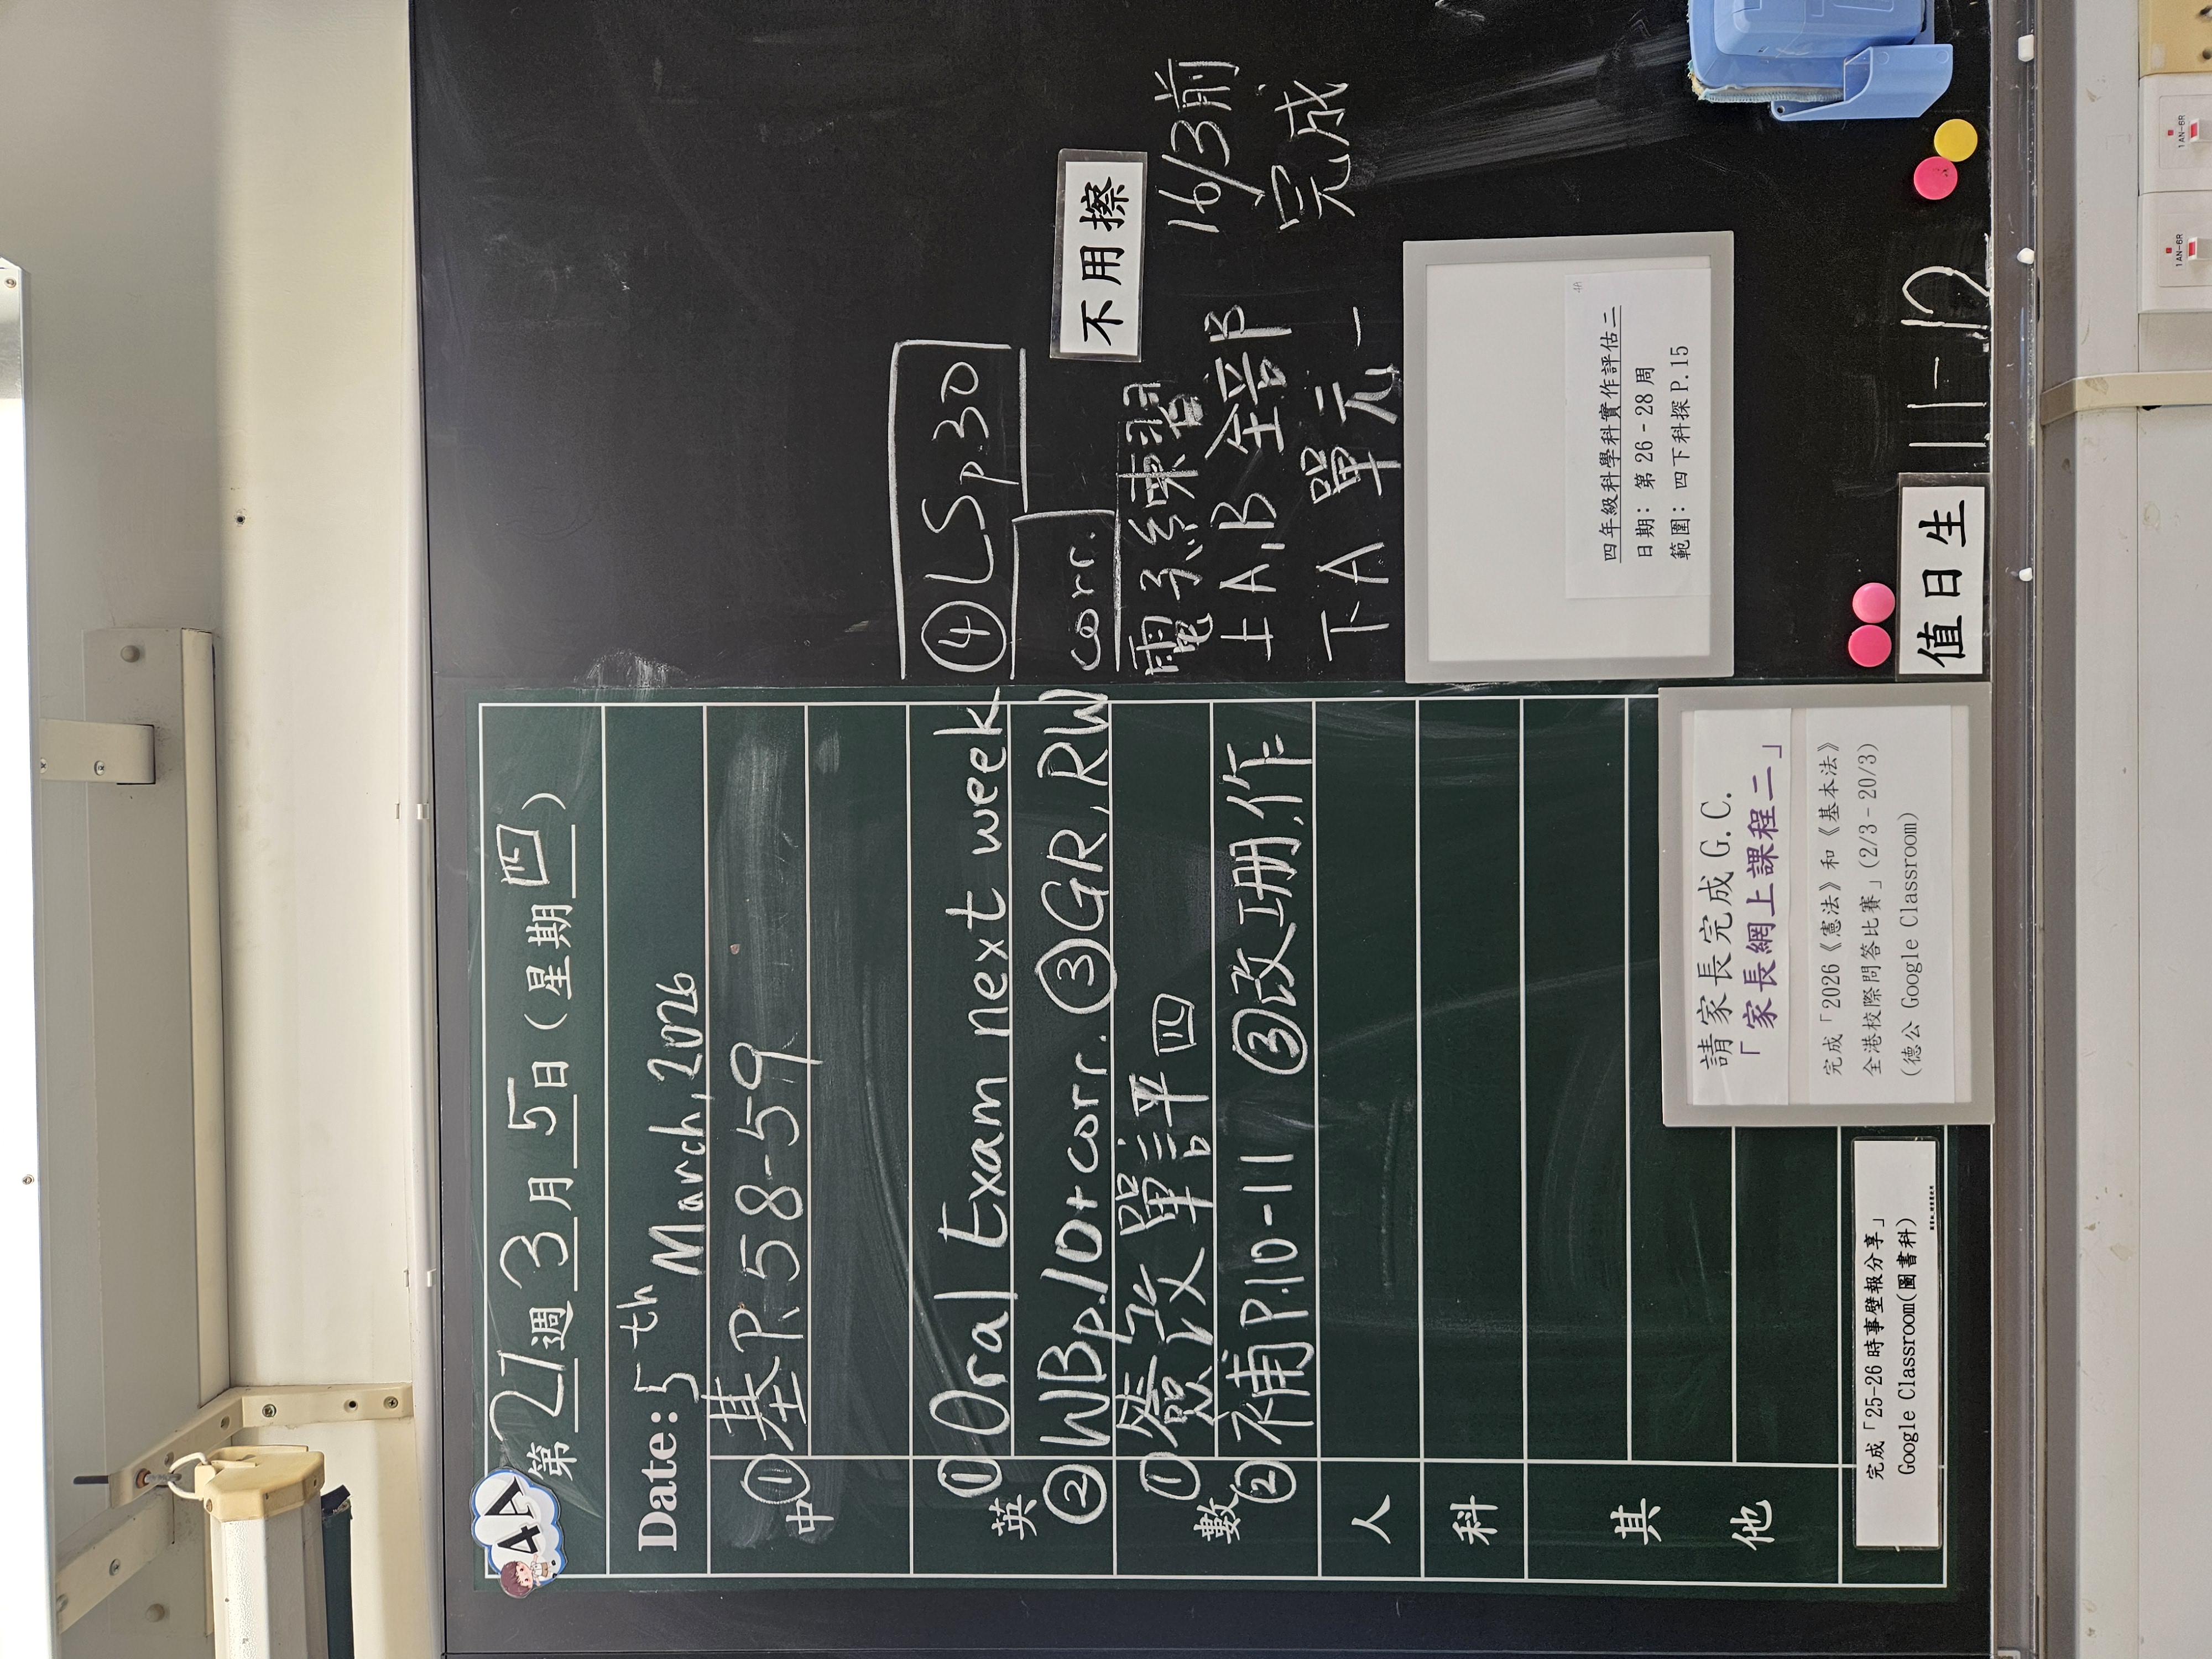 4A
第21週3月5日(星期四)
Date: 5th March, 2026
中 ① 基P.58-59
英 ① Oral Exam next week ④ LS p30
② WBp.10+corr. ③ GR, RW corr.
數 ① 簽改單評四
② 補P.10-11 ③ 改珊,作
人
科
其
他
不用擦
電子練習
上A,B 全部 16/3前
下A 單元一 完成
四年級科學科實作評估二
日期: 第26-28周
範圍: 四下科探P.15
4A
請家長完成G.C.
「家長網上課程二」
完成「2026《憲法》和《基本法》
全港校際問答比賽」(2/3-20/3)
(德公 Google Classroom)
完成「25-26 時事壁報分享」
Google Classroom(圖書科)
值日生 11-12
1AN-6R
1AN-6R